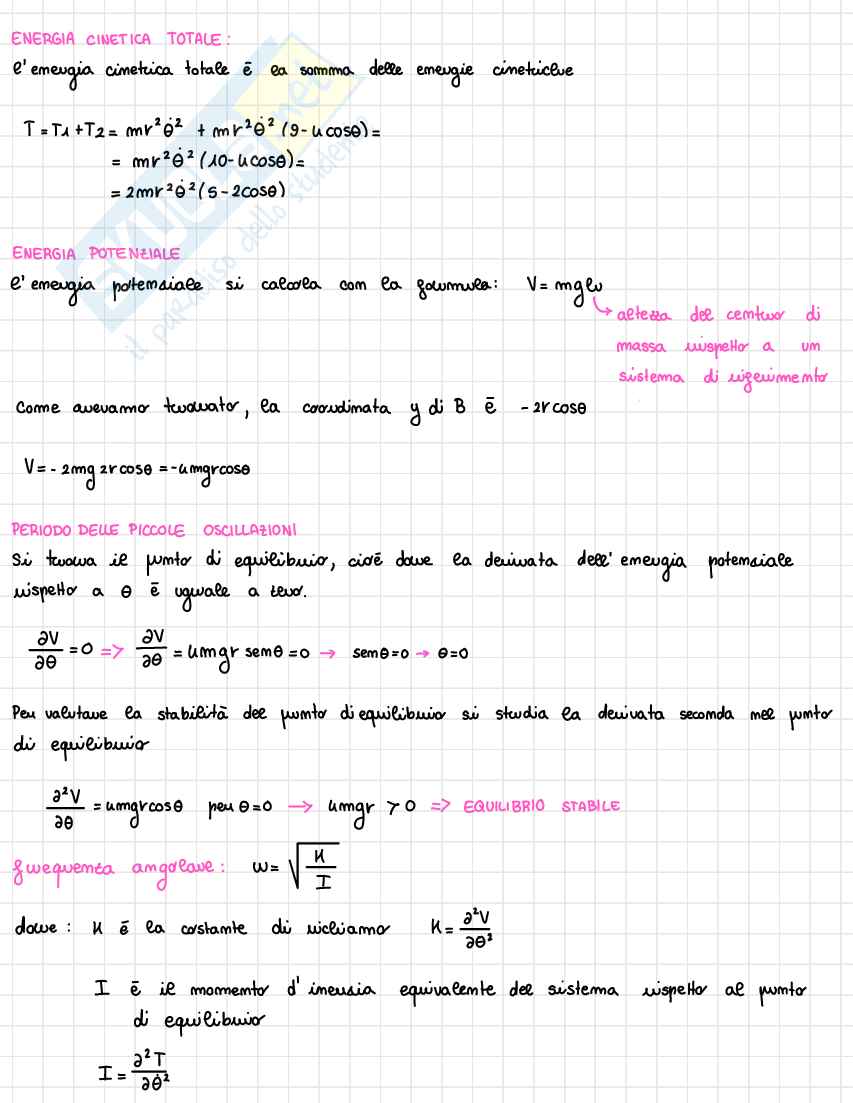 ENERGIA CINETICA TOTALE:
l'energia cinetica totale è la somma delle energie cinetiche
T = T1 + T2 = mr²θ̇² + mr²θ̇² (9 - 4cosθ) =
= mr²θ̇² (10 - 4cosθ) =
= 2mr²θ̇² (5 - 2cosθ)
ENERGIA POTENZIALE
l'energia potenziale si calcola con la formula: V = mgh
altezza del centro di
massa rispetto a un
sistema di riferimento
Come avevamo trovato, la coordinata y di B è - 2rcosθ
V = - 2mg 2rcosθ = - 4mgrcosθ
PERIODO DELLE PICCOLE OSCILLAZIONI
Si trova il punto di equilibrio, cioè dove la derivata dell'energia potenziale
rispetto a θ è uguale a zero.
∂V/∂θ = 0 => ∂V/∂θ = 4mgr senθ = 0 → senθ = 0 → θ = 0
Per valutare la stabilità del punto di equilibrio si studia la derivata seconda nel punto
di equilibrio
∂²V/∂θ = 4mgrcosθ per θ = 0 → 4mgr > 0 => EQUILIBRIO STABILE
frequenza angolare: ω = √(K/I)
dove: K è la costante di richiamo K = ∂²V/∂θ²
I è il momento d'inerzia equivalente del sistema rispetto al punto
di equilibrio
I = ∂²T/∂θ̇²
SKUOLA.net
il paradiso dello studente